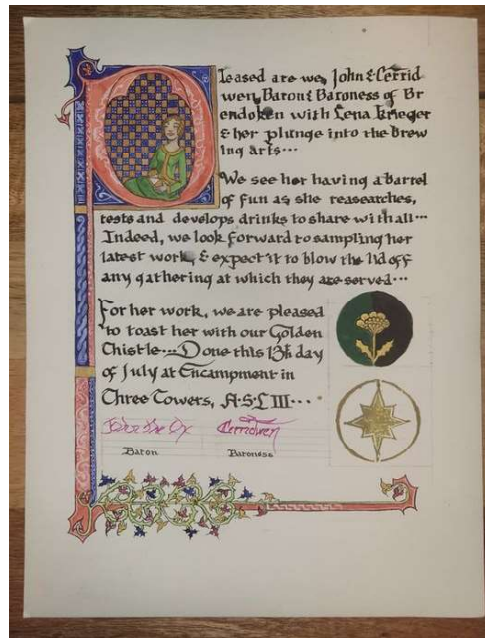 Pleased are we, John & Cerrid
wen, Baron & Baroness of Br
endoken with Lena Krieger
& her plunge into the brew
ing arts...
We see her having a barrel
of fun as she reasearches,
tests and develops drinks to share with all...
Indeed, we look forward to sampling her
latest work, & expect it to blow the lid off
any gathering at which they are served...
For her work, we are pleased
to toast her with our Golden
Thistle... Done this 13th day
of July at Encampment in
Three Towers, A.S. LIII...
John the Cerridwen
Baron Baroness